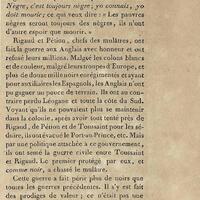 Negre, c'est toujours nègre; yo connais, yo
doit mourir; ce qui veux dire : « Les pauvres
nègres seront toujours des nègres, ils n'ont
d'autre espoir que mourir. »
Rigaud et Pétion, chefs des mulâtres, ont
fait la guerre aux Anglais avec honneur et ont
refusé leurs millions. Malgré les colons blancs
et de couleur, malgré leurs troupes d'Europe, et
plus de douze mille noirs enrégimentés et ayant
pour auxiliaires les Espagnols, les Anglais n'ont
pu gagner un pouce de terrain. Ils ont au con-
traire perdu Léogane et toute la côte du Sud.
Voyant qu'ils ne pouvaient plus se maintenir
dans la colonie, après avoir tout tenté près de
Rigaud, de Pétion et de Toussaint pour les sé-
duire, ils ont évacué le Port-au-Prince, etc. Mais
par une politique attachée à ce gouvernement,
ils ont semé la guerre civile entre Toussaint
et Rigaud. Le premier protégé par eux, et
comme noir, a chassé le mulâtre.
Cette guerre a fait périr plus de noirs que
toutes les guerres précédentes. Il s'y est fait
des prodiges de valeur; ce n'était pas une